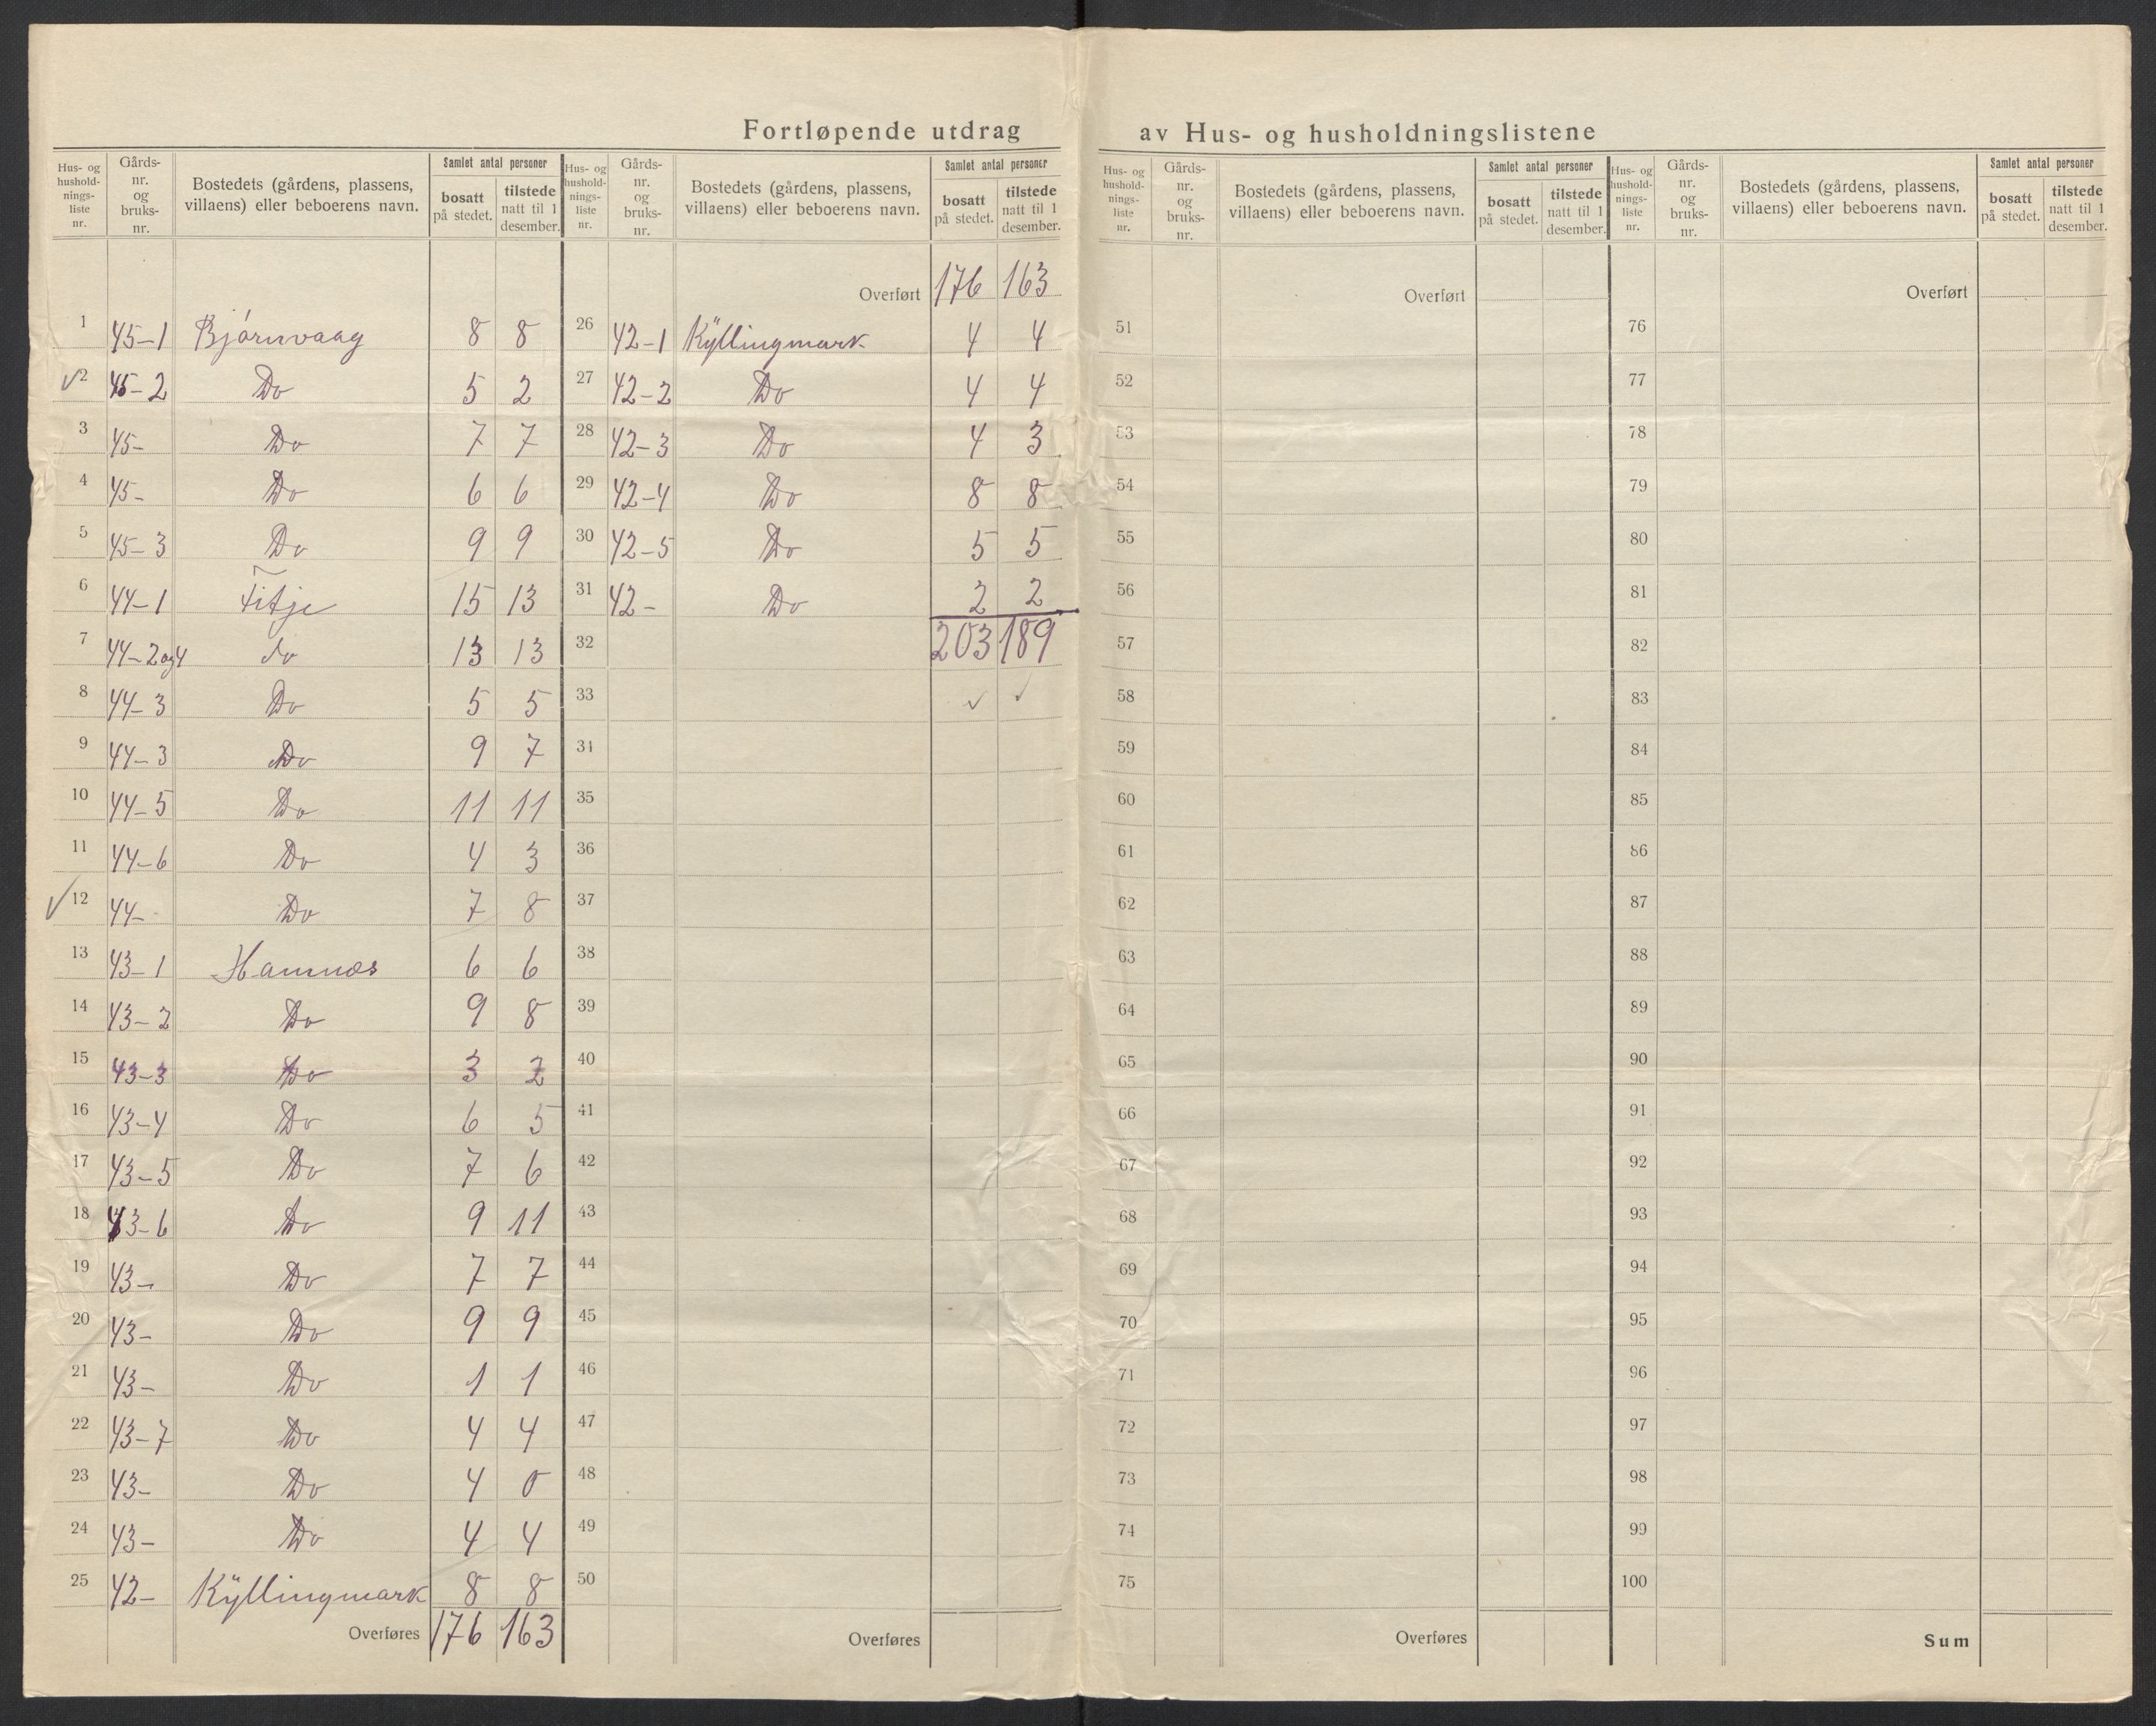 Fortløpende utdrag av Hus- og husholdningslistene
Hus- og hushold- nings- liste nr. | Gårds- nr. og bruks- nr. | Bostedets (gårdens, plassens, villaens) eller beboerens navn. | Samlet antal personer | bosatt på stedet. | tilstede natt til 1 desember.
1 45-1 Bjørnvaag 8 8
✓2 45-2 Do 5 2
3 45- Do 7 7
4 45- Do 6 6
5 45-3 Do 9 9
6 44-1 Fitje 15 13
7 44-2 og 4 do 13 13
8 44-3 Do 5 5
9 44-3 Do 9 7
10 44-5 Do 11 11
11 44-6 Do 4 3
✓12 44- Do 7 8
13 43-1 Hamnes 6 6
14 43-2 Do 9 8
15 43-3 Do 3 2
16 43-4 Do 6 5
17 43-5 Do 7 6
18 43-6 Do 9 11
19 43- Do 7 7
20 43- Do 9 9
21 43- Do 1 1
22 43-7 Do 4 4
23 43- Do 4 0
24 43- Do 4 4
25 42- Kÿllingmark 8 8
Overføres 176 163
Hus- og hushold- nings- liste nr. | Gårds- nr. og bruks- nr. | Bostedets (gårdens, plassens, villaens) eller beboerens navn. | Samlet antal personer | bosatt på stedet. | tilstede natt til 1 desember.
Overført 176 163
26 42-1 Kÿllingmark 4 4
27 42-2 Do 4 4
28 42-3 Do 4 3
29 42-4 Do 8 8
30 42-5 Do 5 5
31 42- Do 2 2
32 203 189
33 ✓ ✓
34
35
36
37
38
39
40
41
42
43
44
45
46
47
48
49
50
Overføres
Hus- og hushold- nings- liste nr. | Gårds- nr. og bruks- nr. | Bostedets (gårdens, plassens, villaens) eller beboerens navn. | Samlet antal personer | bosatt på stedet. | tilstede natt til 1 desember.
Overført
51
52
53
54
55
56
57
58
59
60
61
62
63
64
65
66
67
68
69
70
71
72
73
74
75
Overføres
Hus- og hushold- nings- liste nr. | Gårds- nr. og bruks- nr. | Bostedets (gårdens, plassens, villaens) eller beboerens navn. | Samlet antal personer | bosatt på stedet. | tilstede natt til 1 desember.
Overført
76
77
78
79
80
81
82
83
84
85
86
87
88
89
90
91
92
93
94
95
96
97
98
99
100
Sum